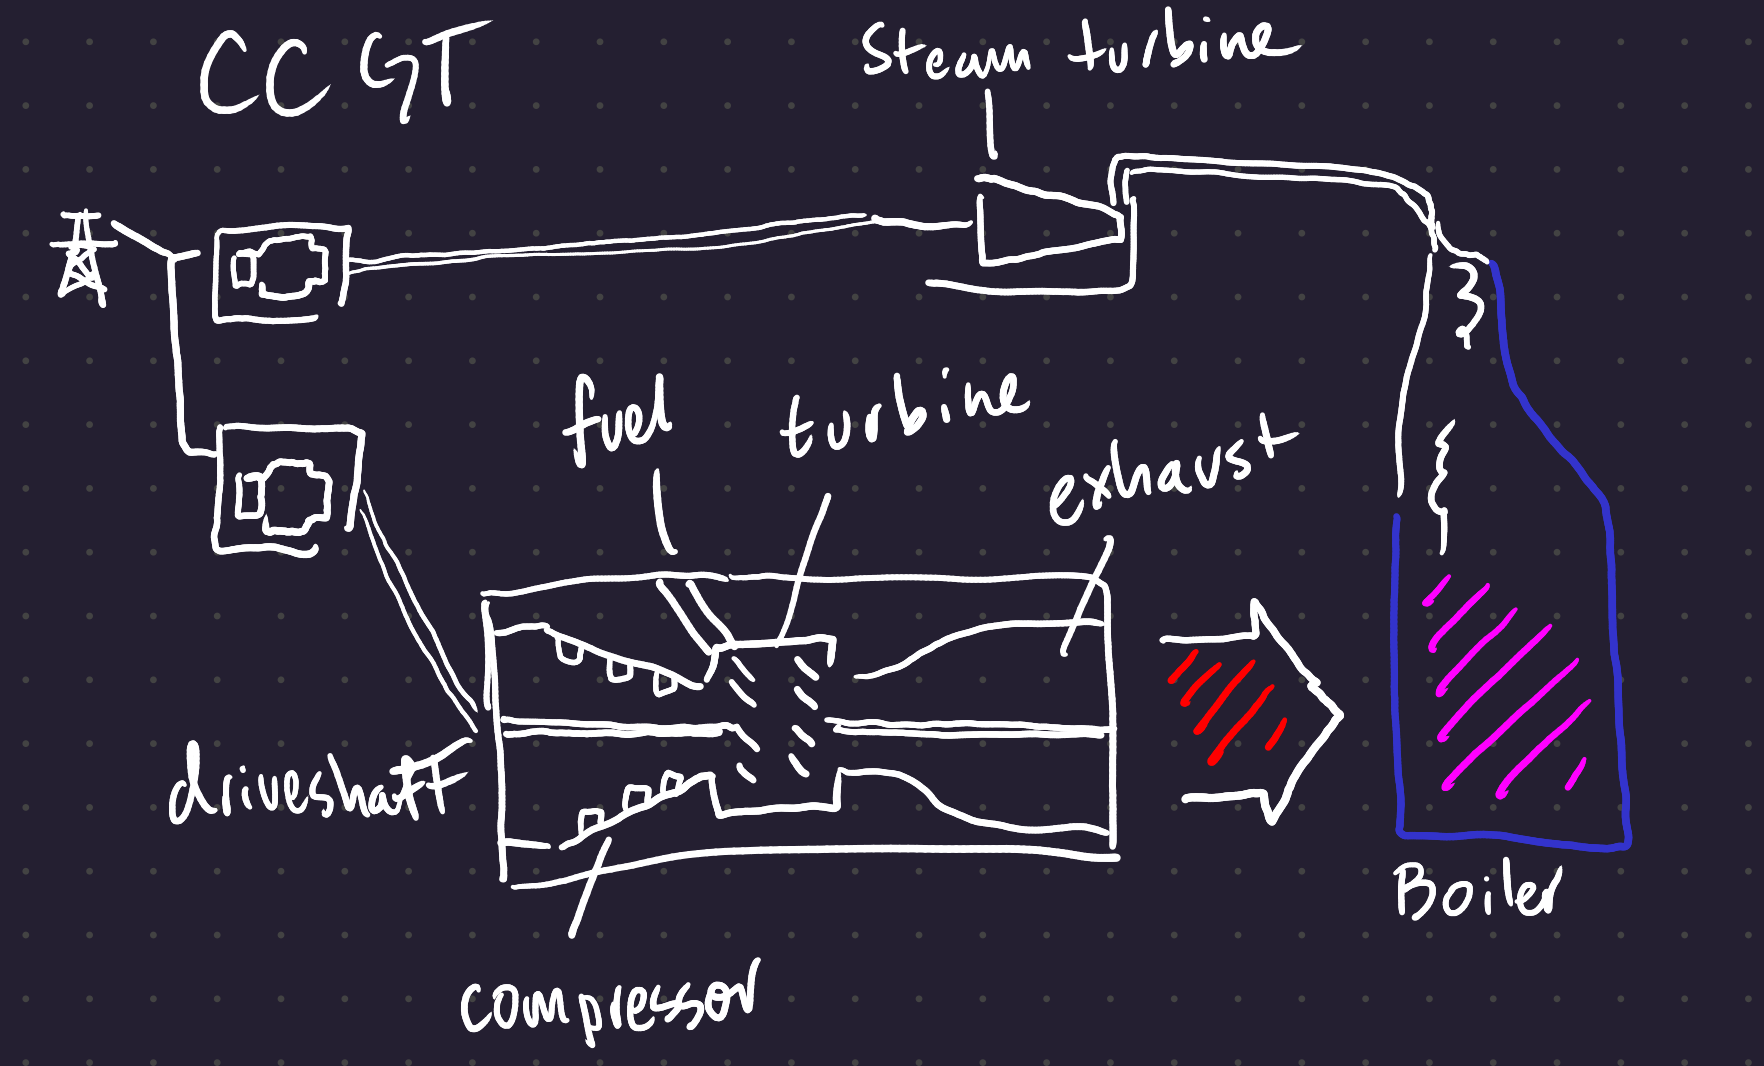 CCGT
Steam turbine
fuel
turbine
exhaust
driveshaft
Boiler
compressor